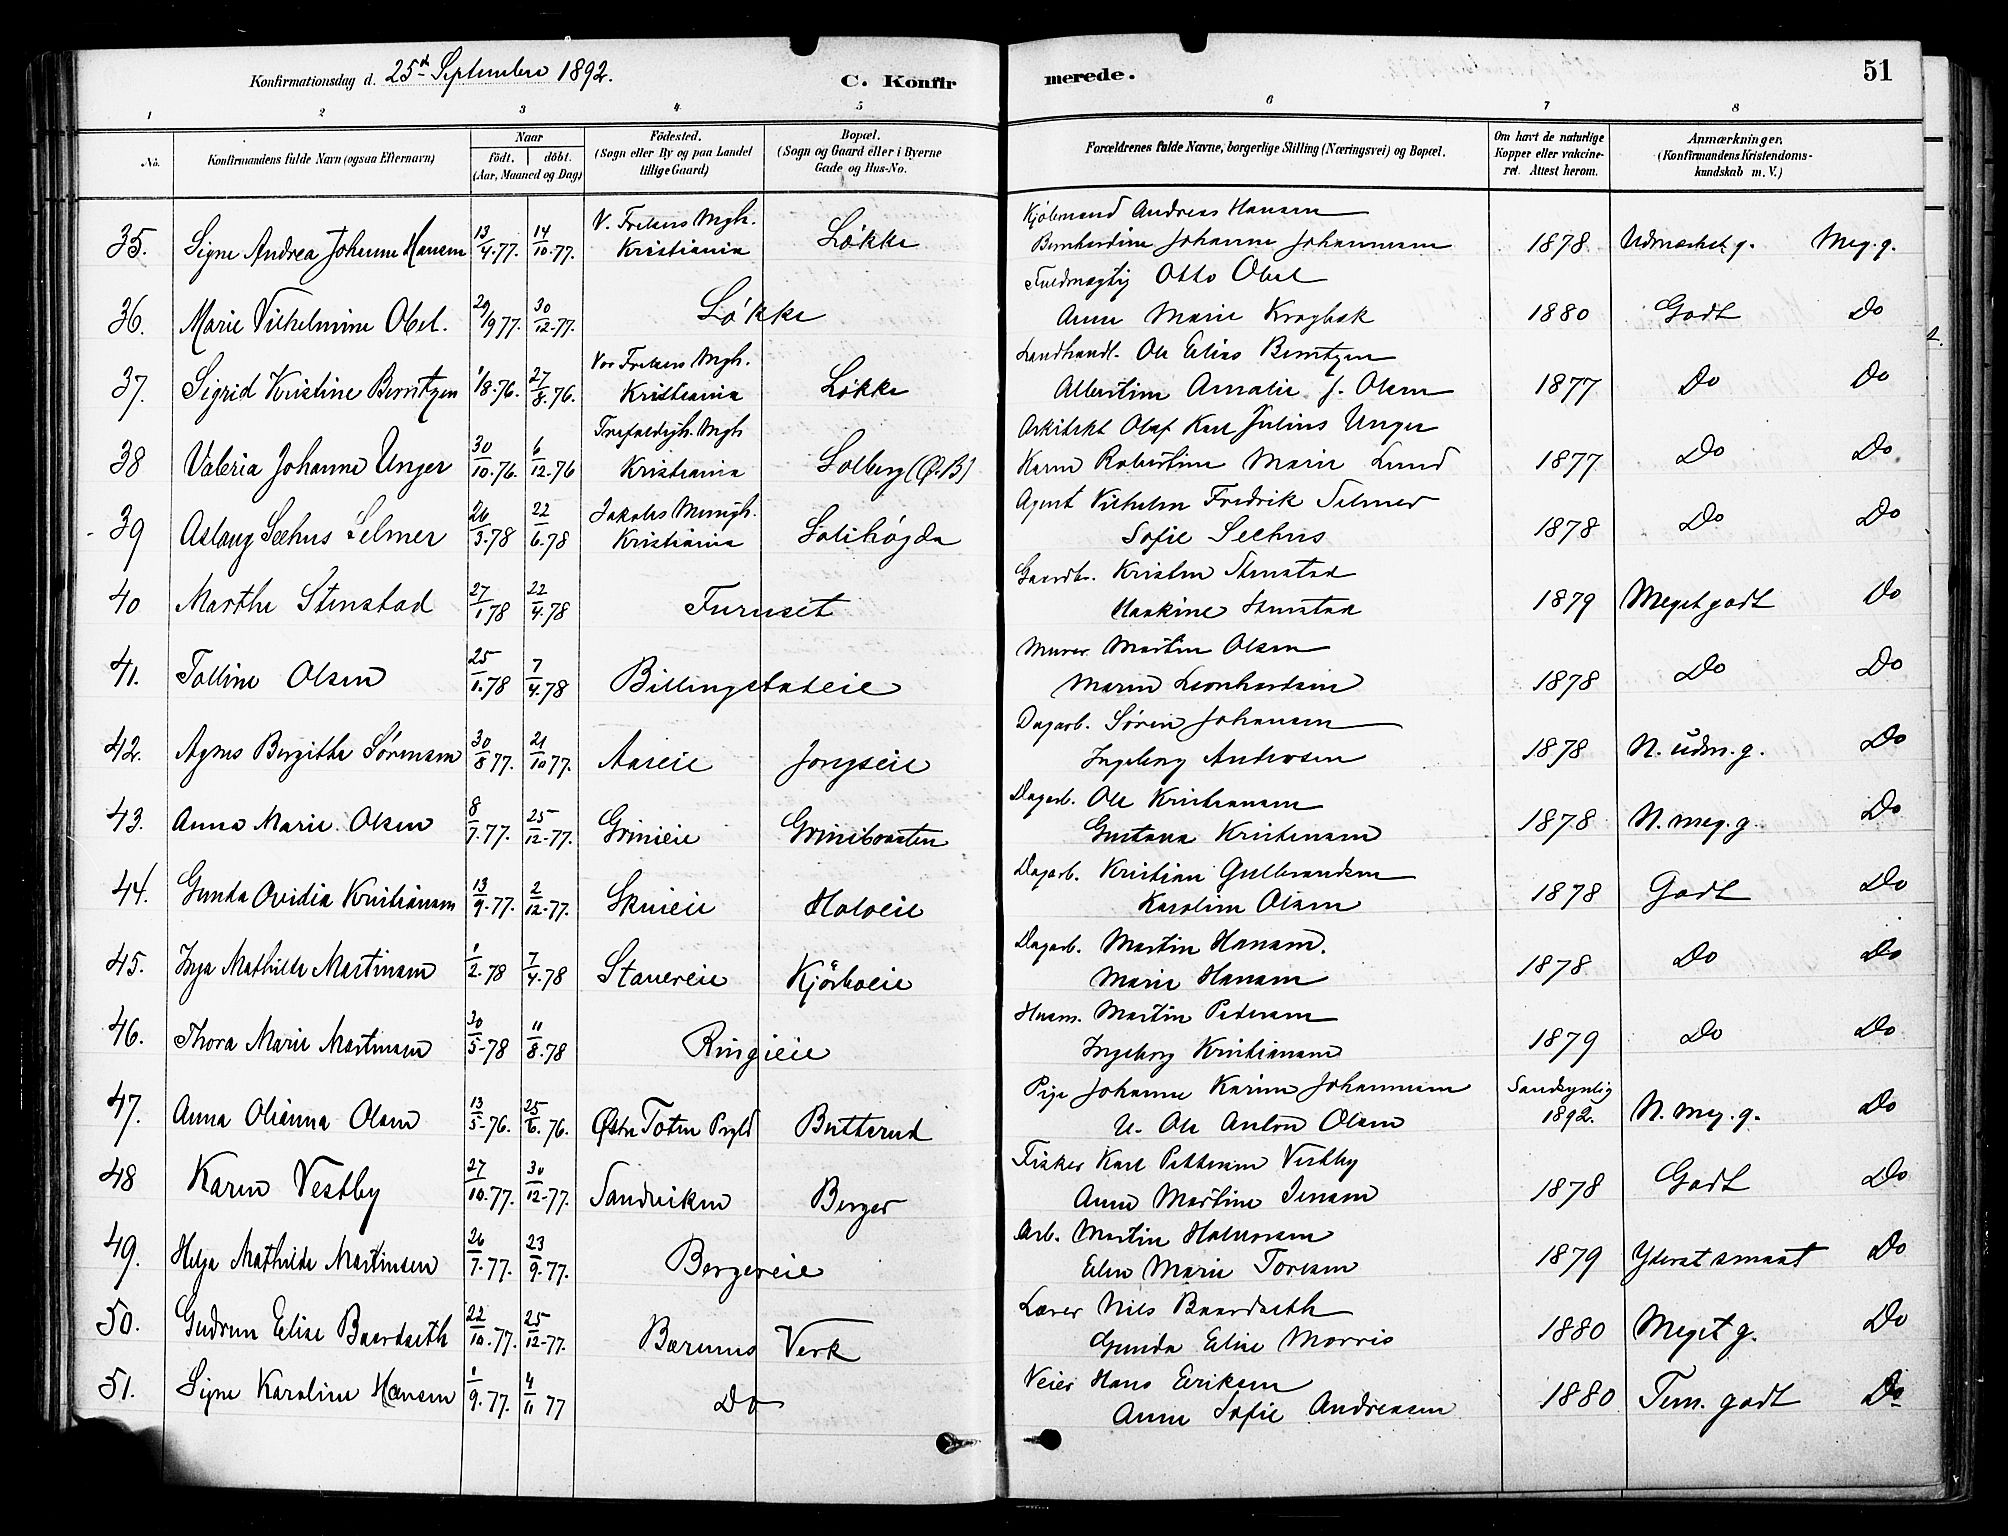 Konfirmationsdag d. 25d September 1892.
C. Konfirmerede.
51
1 2 3 4 5 6 7 8
No.
Konfirmandens fulde Navn (ogsaa Efternavn)
Naar
födt. döbt.
(Aar, Maaned og Dag)
Födested.
(Sogn eller By og paa Landet
tillige Gaard)
Bopæl.
(Sogn og Gaard eller i Byerne
Gade og Hus-No.
Forældrenes fulde Navne, borgerlige Stilling (Næringsvei) og Bopæl.
Om havt de naturlige
Kopper eller vakcine-
ret. Attest herom.
Anmærkninger.
(Konfirmandens Kristendoms-
kundskab m. V.)
V. Frelsers Mgh. Kjøbmand Andreas Hansen
35. Signe Andrea Johanne Hansen 13/4.77. 14/10.77. Kristiania Løkke Bernhardine Johanne Johannesen 1878 Udmærket g. Meg. g.
Fuldmægtig Otto Obel
36. Marie Vilhelmine Obel. 29/9 77. 30/12.77. Løkke Anne Marie Kragbak 1880 Godt Do
Vor Frelsers Mgh. Landhandl. Ole Elias Berntzen
37. Sigrid Kristine Berntzen 1/8.76. 27/8.76. Kristiania Løkke Albertine Amalie J. Olsen 1877 Do Do
Trefoldigh. Mgh Arkitekt Olaf Karl Julius Unger
38 Valeria Johanne Unger 30/10.76. 6/12.76 Kristiania Solberg (Ø.B) Karen Robertine Marie Lund 1877 Do Do
Jakobs Menigh. Agent Vilhelm Fredrik Selmer
39 Aslaug Seehus Selmer 26/3.78 22/6.78 Kristiania Solihøgda Sofie Seehus 1878 Do Do
Gaardbr. Kristen Stenstad
40 Marthe Stenstad 27/1.78 22/4.78 Furuset Haakine Stenstad 1879 Meget godt Do
Murer Martin Olsen
41. Tolline Olsen 25/1.78 7/4.78 Billingstadeie Maren Leonhardsen 1878 Do Do
Dagarb. Søren Johansen
42. Agnes Bergithe Sørensen 30/8 77. 21/10 77. Aaseie Jongseie Ingeborg Andersen 1878 N. udm. g. Do
Dagarb. Ole Kristiansen
43. Anna Marie Olsen 8/7.77. 25/12.77. Grinieie Grinibraaten Gustava Kristensen 1878 N. meg. g. Do
Dagarb. Kristian Gulbrandsen
44. Gunda Ovidia Kristiansen 13/9.77. 2/12.77. Skuieie Holoeie Karoline Olsen 1878 Godt Do
Dagarb. Martin Hansen.
45. Inga Mathilde Martinsen 1/2.78 7/4.78 Stavereie Kjørboeie Marie Hansen 1878 Do Do
Husm. Martin Pedersen
46. Thora Marie Martinsen 30/5-78 11/8.78 Ringieie Ingeborg Kristiansen 1879 Do Do
Pige Johanne Karine Johannesen Sandsynlig
47. Anna Olianna Olsen 13/5-76. 25/6.76. Østre Toten Prgld Butterud U. Ole Anton Olsen 1892. N. meg. g. Do
Fisker Karl Pettersen Vestby
48 Karen Vestby 27/10.77. 30/12-77. Sandviken Berger Anne Martine Jensen 1878 Godt Do
Arb. Martin Halvorsen
49. Helga Mathilde Martinsen 26/7.77. 23/9.77. Bergereie Elen Marie Toresen 1879 Yderst smaat Do
Lærer Nils Baardseth
50. Gudrun Elise Baardseth 22/10.77. 25/12-77. Bærums Verk Gunda Elise Morris 1880 Meget g. Do
Veier Hans Eriksen
51. Signe Karoline Hansen 1/9.77. 4/11 77 Do Anne Sofie Andreasen 1880 Tem. godt Do